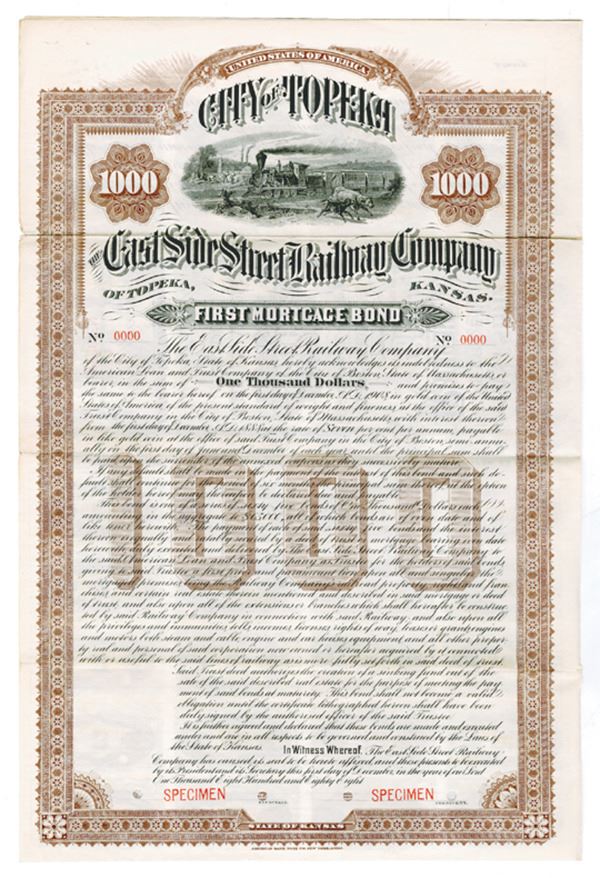 UNITED STATES OF AMERICA
CITY OF TOPEKA
1000 1000
THE East Side Street Railway Company
OF TOPEKA, KANSAS.
FIRST MORTGAGE BOND
No 0000 No 0000
The East Side Street Railway Company
of the City of Topeka, State of Kansas, hereby acknowledges its indebtedness to the
American Loan and Trust Company of the City of Boston, State of Massachusetts, or
bearer, in the sum of One Thousand Dollars, and promises to pay
the same to the bearer hereof on the first day of December, A.D. 1908 in gold coin of the United
States of America of the present standard of weight and fineness, at the office of the said
Trust Company in the City of Boston, State of Massachusetts, with interest thereon
from the first day of December, A.D. 1888 at the rate of Seven per cent per annum, payable
in like gold coin at the office of said Trust Company in the City of Boston, semi-annu-
ally on the first day of June and December of each year until the principal sum shall
be paid on the surrender of the annexed coupons as they successively mature.
If any default shall be made in the payment of interest on this bond and such de-
fault shall continue for the period of six months, the principal sum shall at the option
of the holder hereof may thereafter be declared due and payable.
This bond is one of a series of sixty five bonds of One Thousand Dollars each
amounting in the aggregate to $65,000, all of which bonds are of even date and of
like tenor herewith. The payment of each of said series of bonds and the interest
thereon equally is secured by a deed of trust or mortgage bearing even date
herewith duly executed and delivered by the East Side Street Railway Company to
the said American Loan and Trust Company as trustee for the holders of said bonds
giving to said Trustee a first lien and mortgage being upon all and singular the
mortgaged premises being the Railway Company's railroad property real and personal fran
chises and certain real estate therein mentioned and described in said mortgage or deed
of trust, and also upon all of the extensions or branches which shall hereafter be construc
ted by said Railway Company in connection with said Railway, and also upon all
the privileges and immunities, tolls, incomes, licenses, rights of way, leases or grants, engines
and motors both steam and cable engine and car houses, equipment and all other proper-
ty real and personal of said corporation now owned or hereafter acquired by it connected
with or useful to the said lines of railway as is more fully set forth in said deed of trust.
Said Trust deed authorizes the creation of a sinking fund out of the
sale of the said described real estate for the purpose of insuring the pay
ment of said bonds at maturity. This bond shall not become a valid
obligation until the certificate lithographed hereon shall have been
duly signed by the authorized officer of the said Trustee.
It is further agreed and declared that these bonds are made and executed
under and are in all respects to be governed and construed by the Laws of
the State of Kansas. In Witness Whereof, The East Side Street Railway
Company has caused its seal to be hereto affixed, and these presents to be executed
by its President and its Secretary this first day of December, in the year of our Lord
One Thousand Eight Hundred and Eighty Eight
1000
SPECIMEN SPECIMEN
SECRETARY. PRESIDENT.
STATE OF KANSAS
AMERICAN BANK NOTE CO. NEW YORK